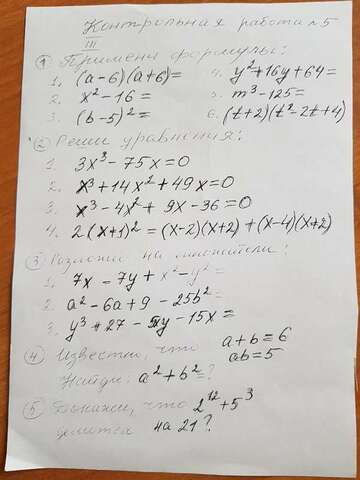 Контрольная работа №5
III
① Применя формулы:
1. (a-6)(a+6)=
4. y²+16y+64=
2. x²-16=
5. m³-125=
3. (b-5)²=
6. (t+2)(t²-2t+4)
② Реши уравнения:
1. 3x³-75x=0
2. x³+14x²+49x=0
3. x³-4x²+9x-36=0
4. 2(x+1)²=(x-2)(x+2)+(x-4)(x+2)
③ Разложи на множители:
1. 7x-7y+x²-y²=
2. a²-6a+9-25b²=
3. y³+27-5xy-15x=
④ Известно, что a+b=6
ab=5
Найди: a²+b²=?
⑤ Докажи, что 2¹²+5³
делится на 21?